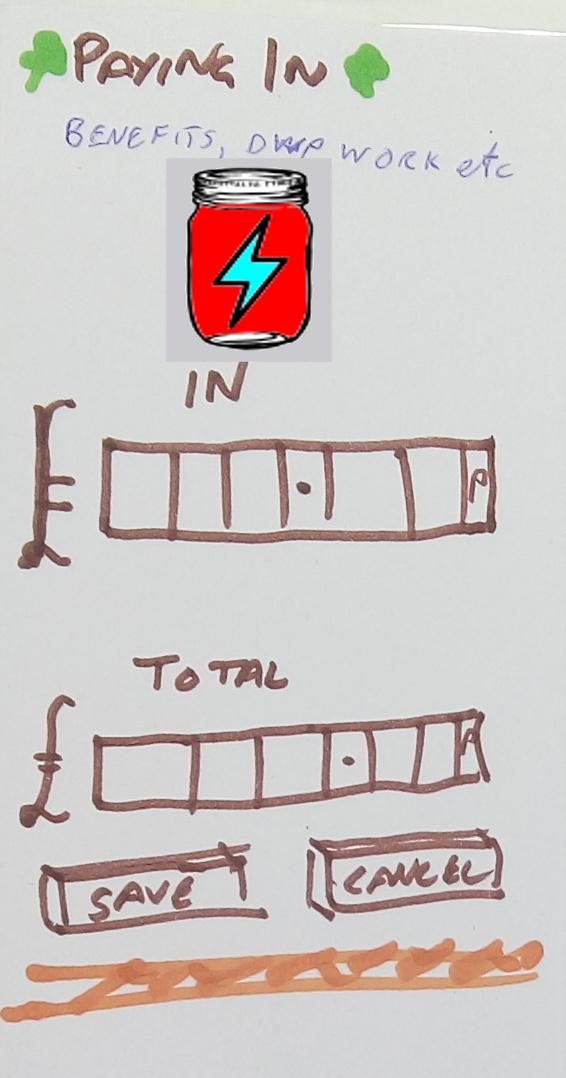 PAYING IN
BENEFITS, DWP WORK etc
IN
£ . P
TOTAL
£ . P
SAVE CANCEL